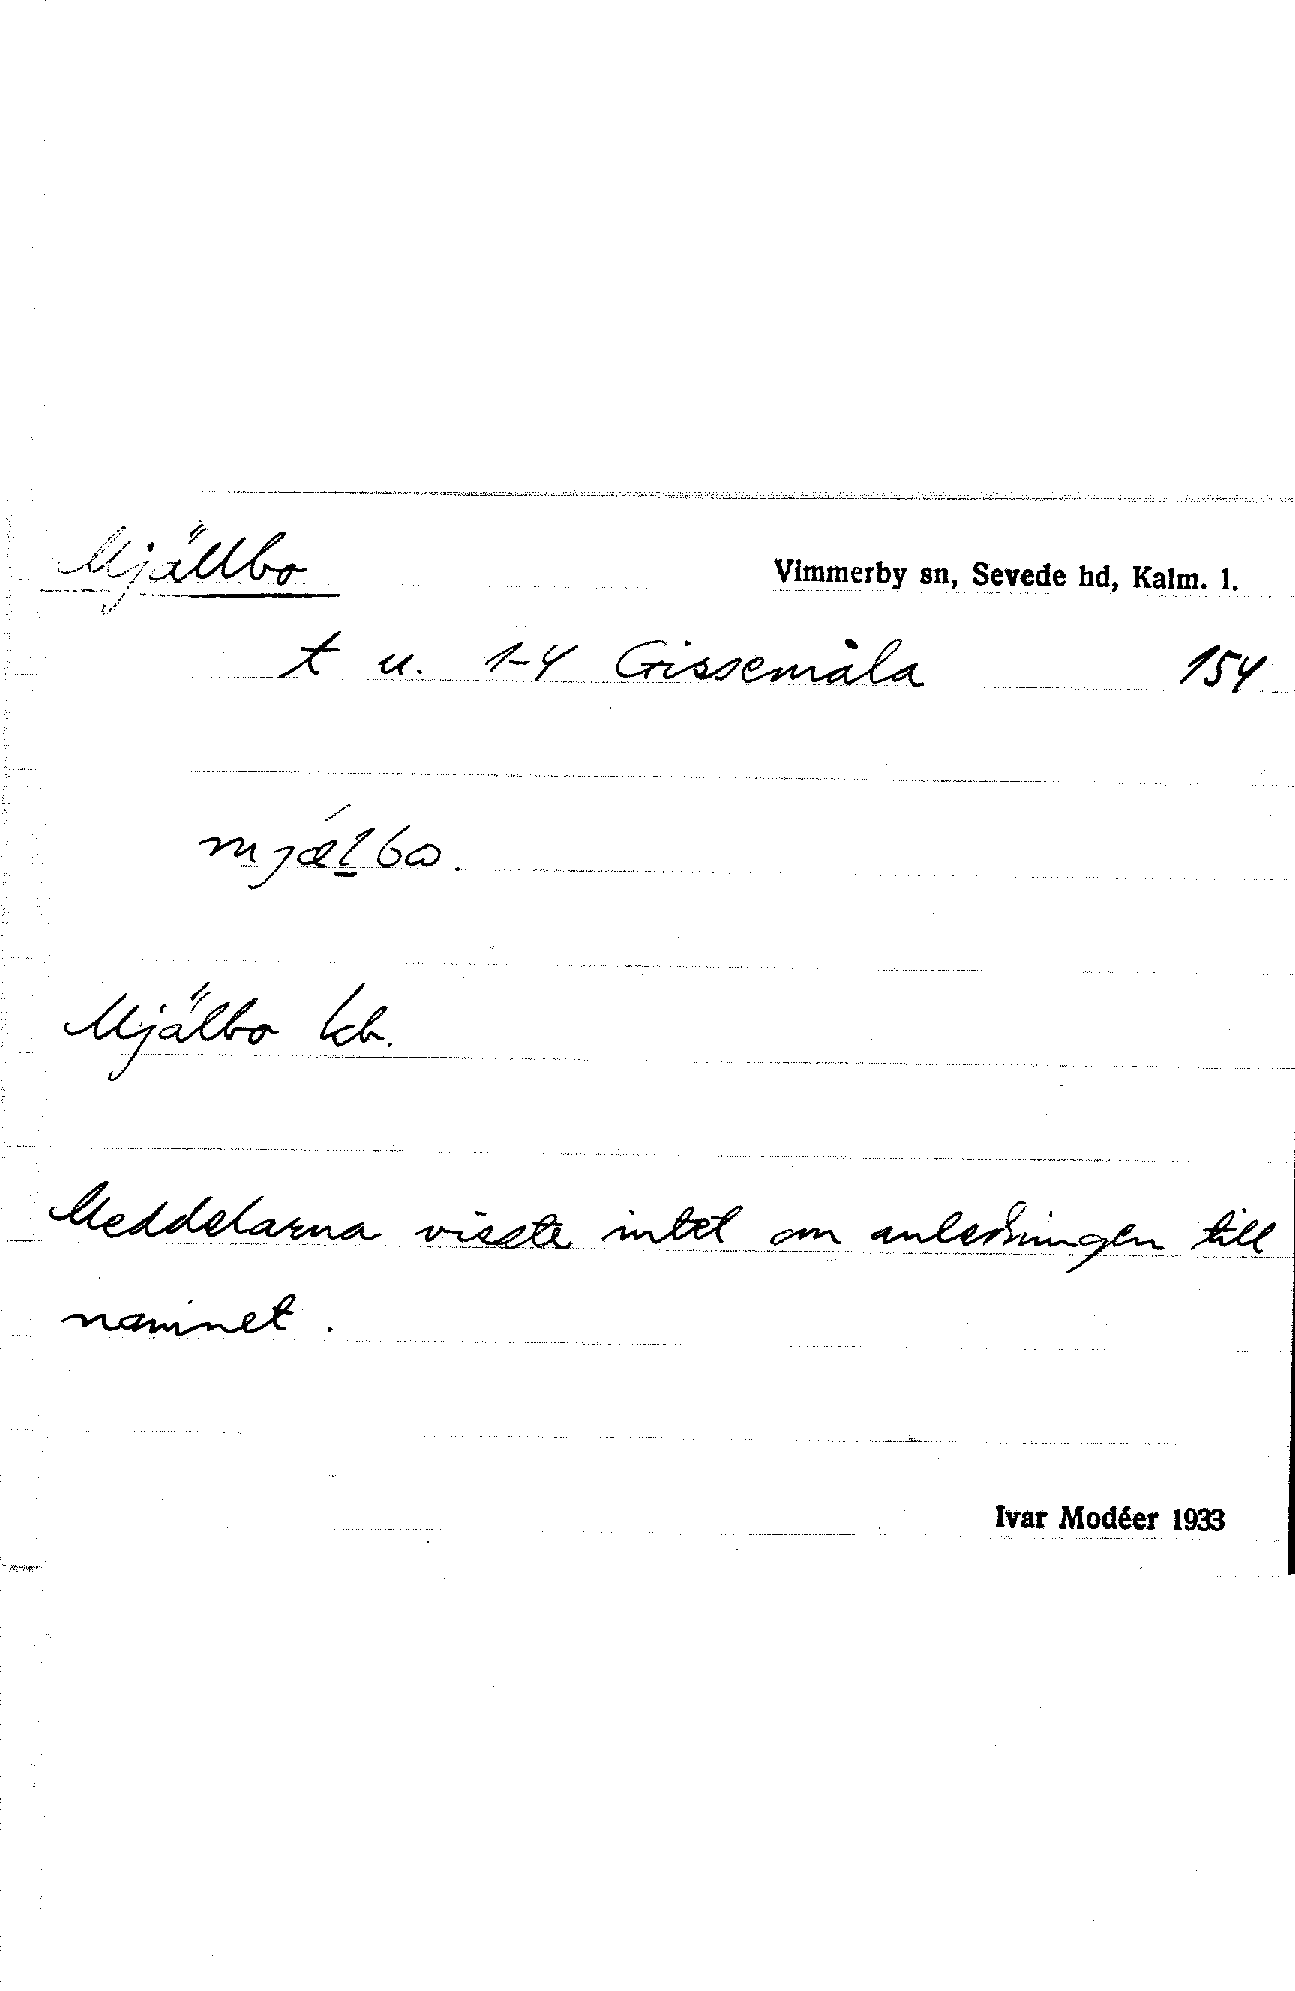 Mjällbo
Vimmerby sn, Sevede hd, Kalm. l.
t u. 1-4 Gissemåla 154
mjælbo.
Mjälbo kb.
Meddelarna visste intet om anledningen till
namnet.
Ivar Modéer 1933